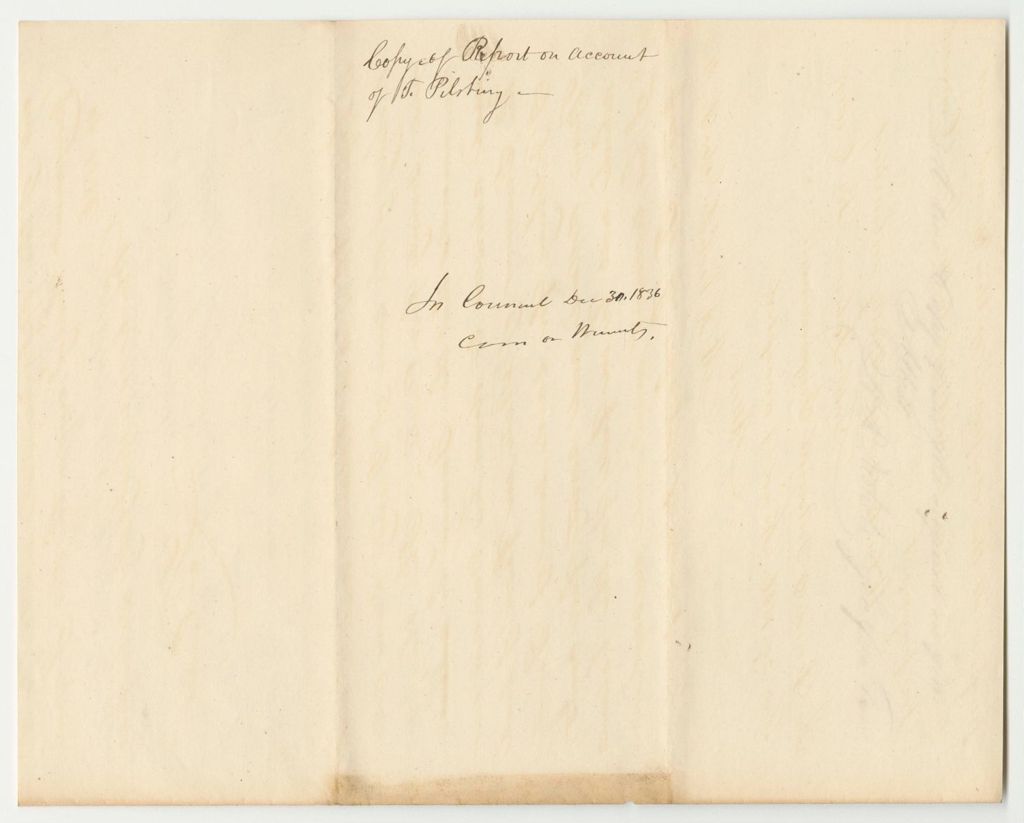 Copy of Report on account
of T. Pilsbury —
In Council Dec 30. 1836
Com on Warrants.